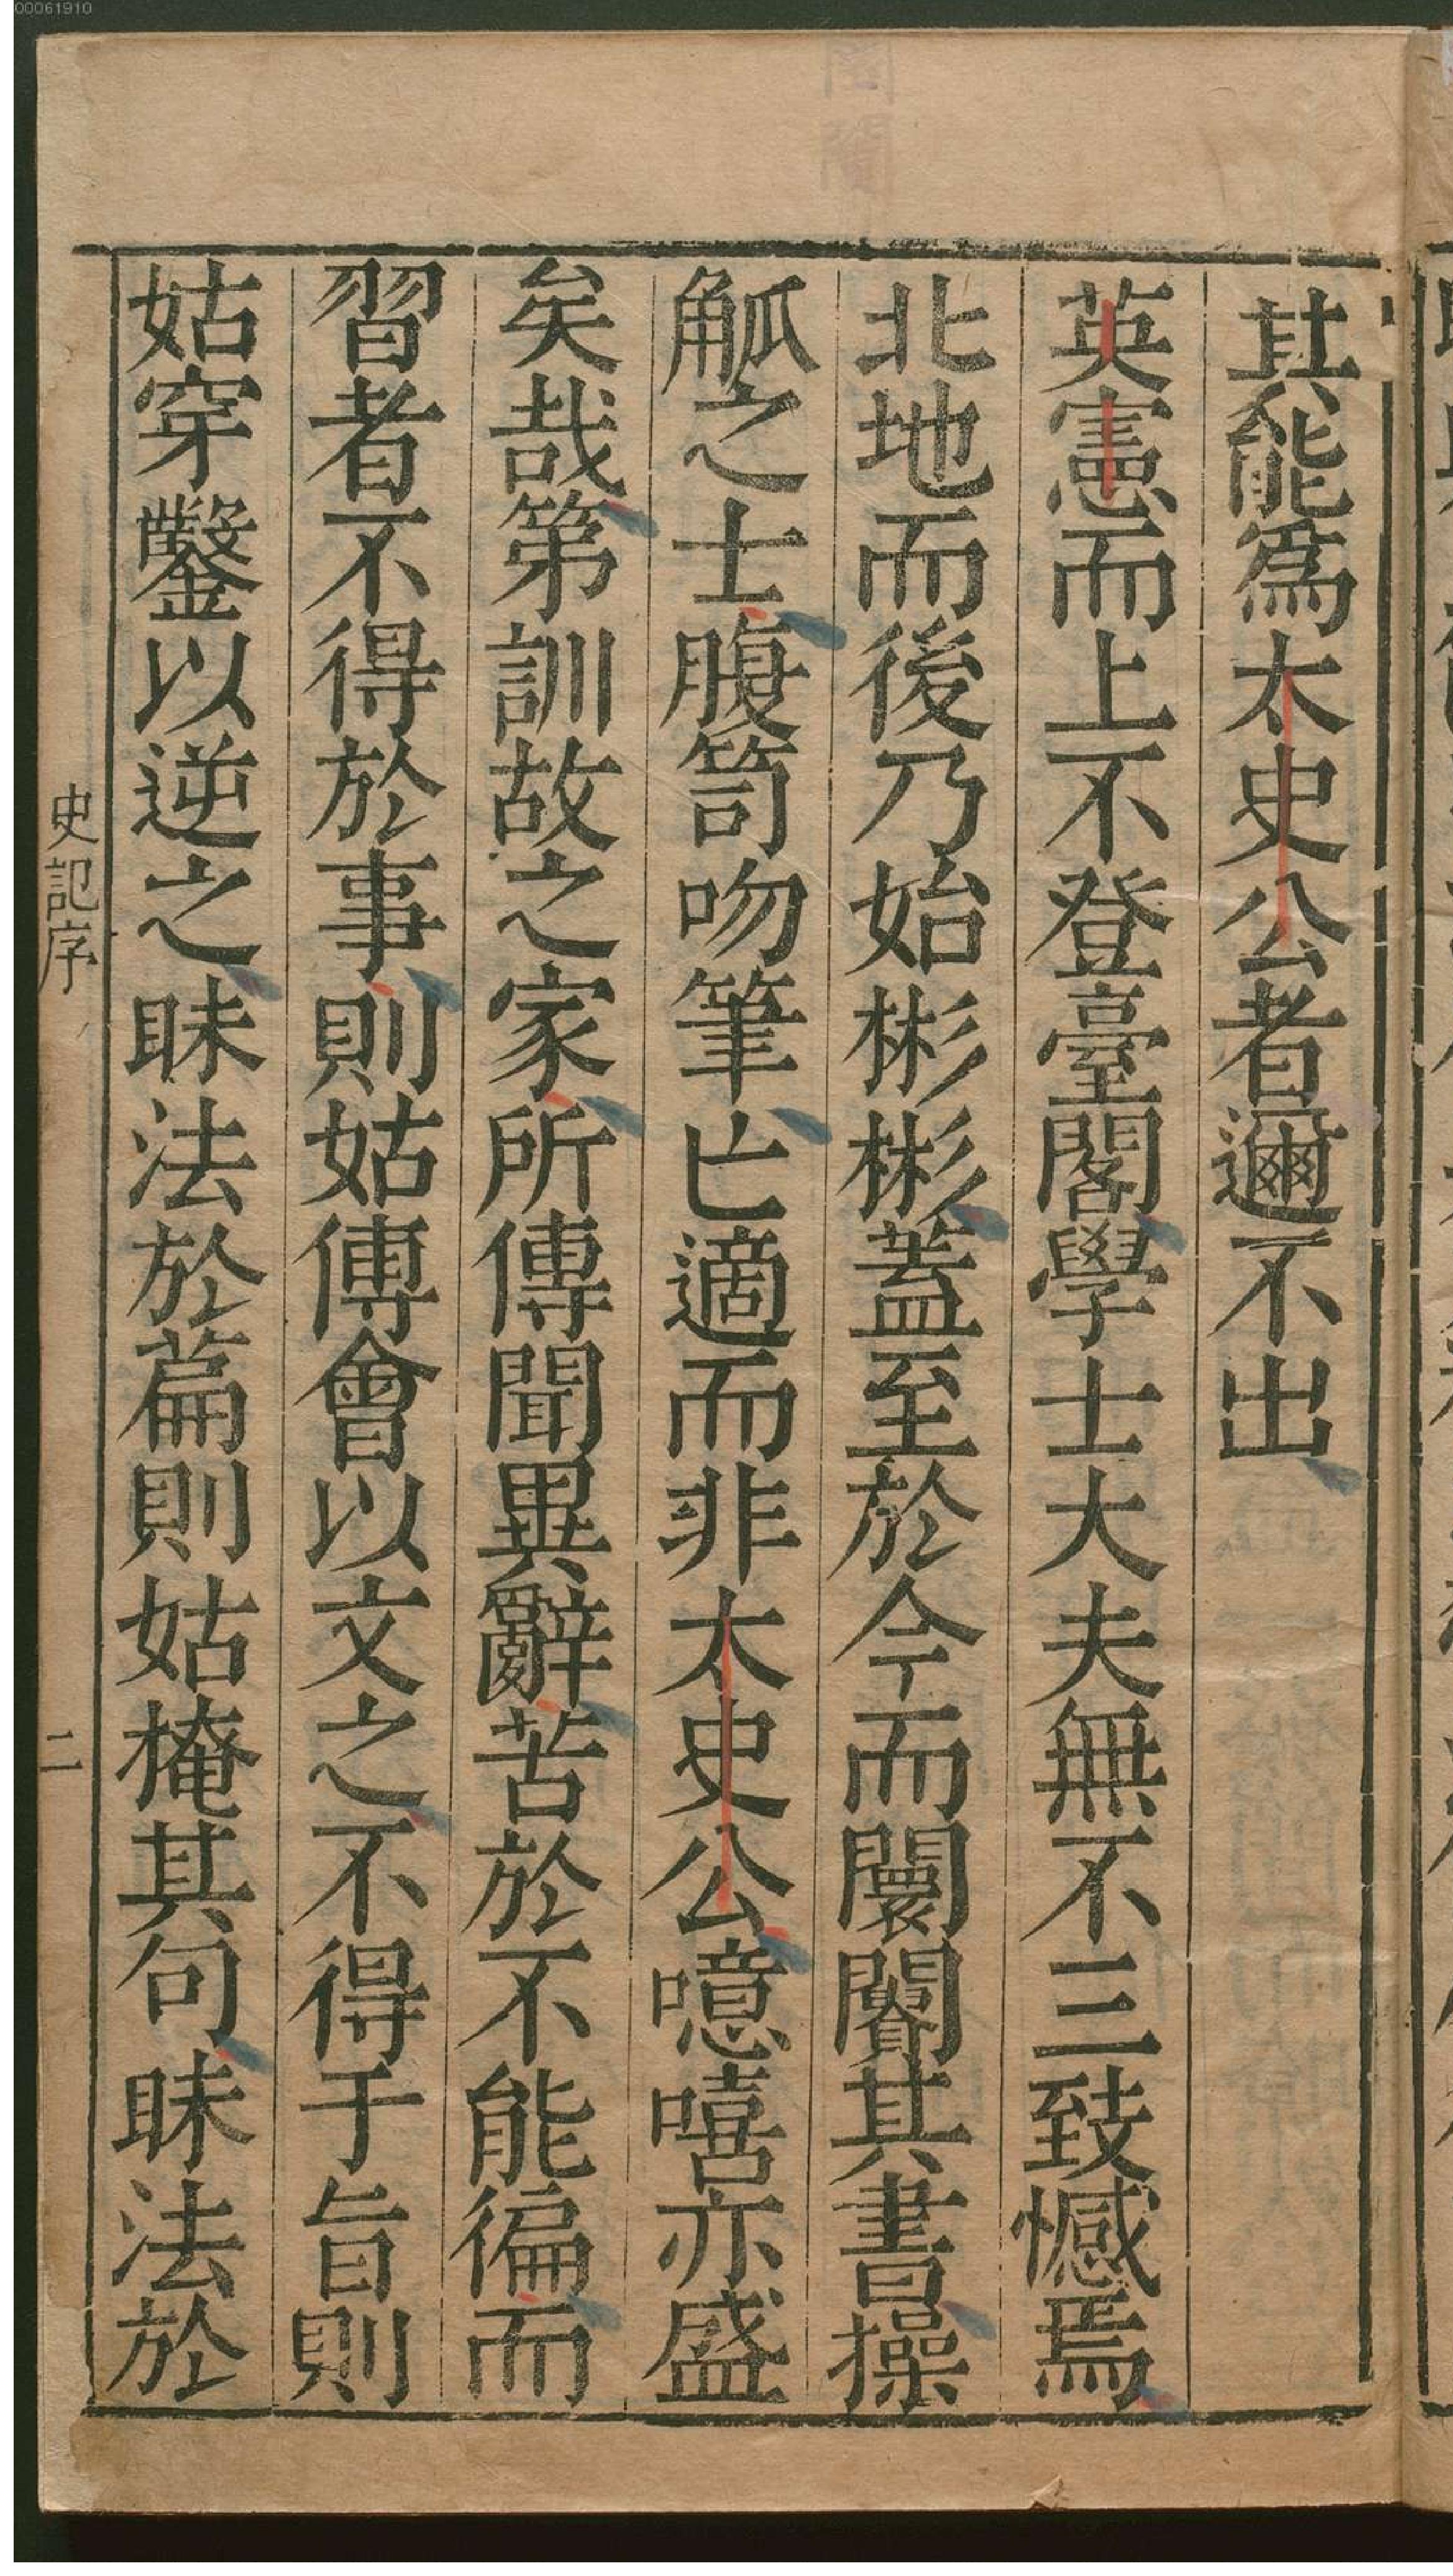 其能為太史公者邇不出
英憲而上不登臺閣學士大夫無不三致憾焉
北地而後乃始彬彬蓋至於今而闤闠其書操
觚之士腹笥吻筆亡適而非太史公噫嘻亦盛
矣哉第訓故之家所傳聞異辭苦於不能徧而
習者不得於事則姑傅會以文之不得于旨則
姑穿鑿以逆之昧法於篇則姑掩其句昧法於
史記序
二
00061910